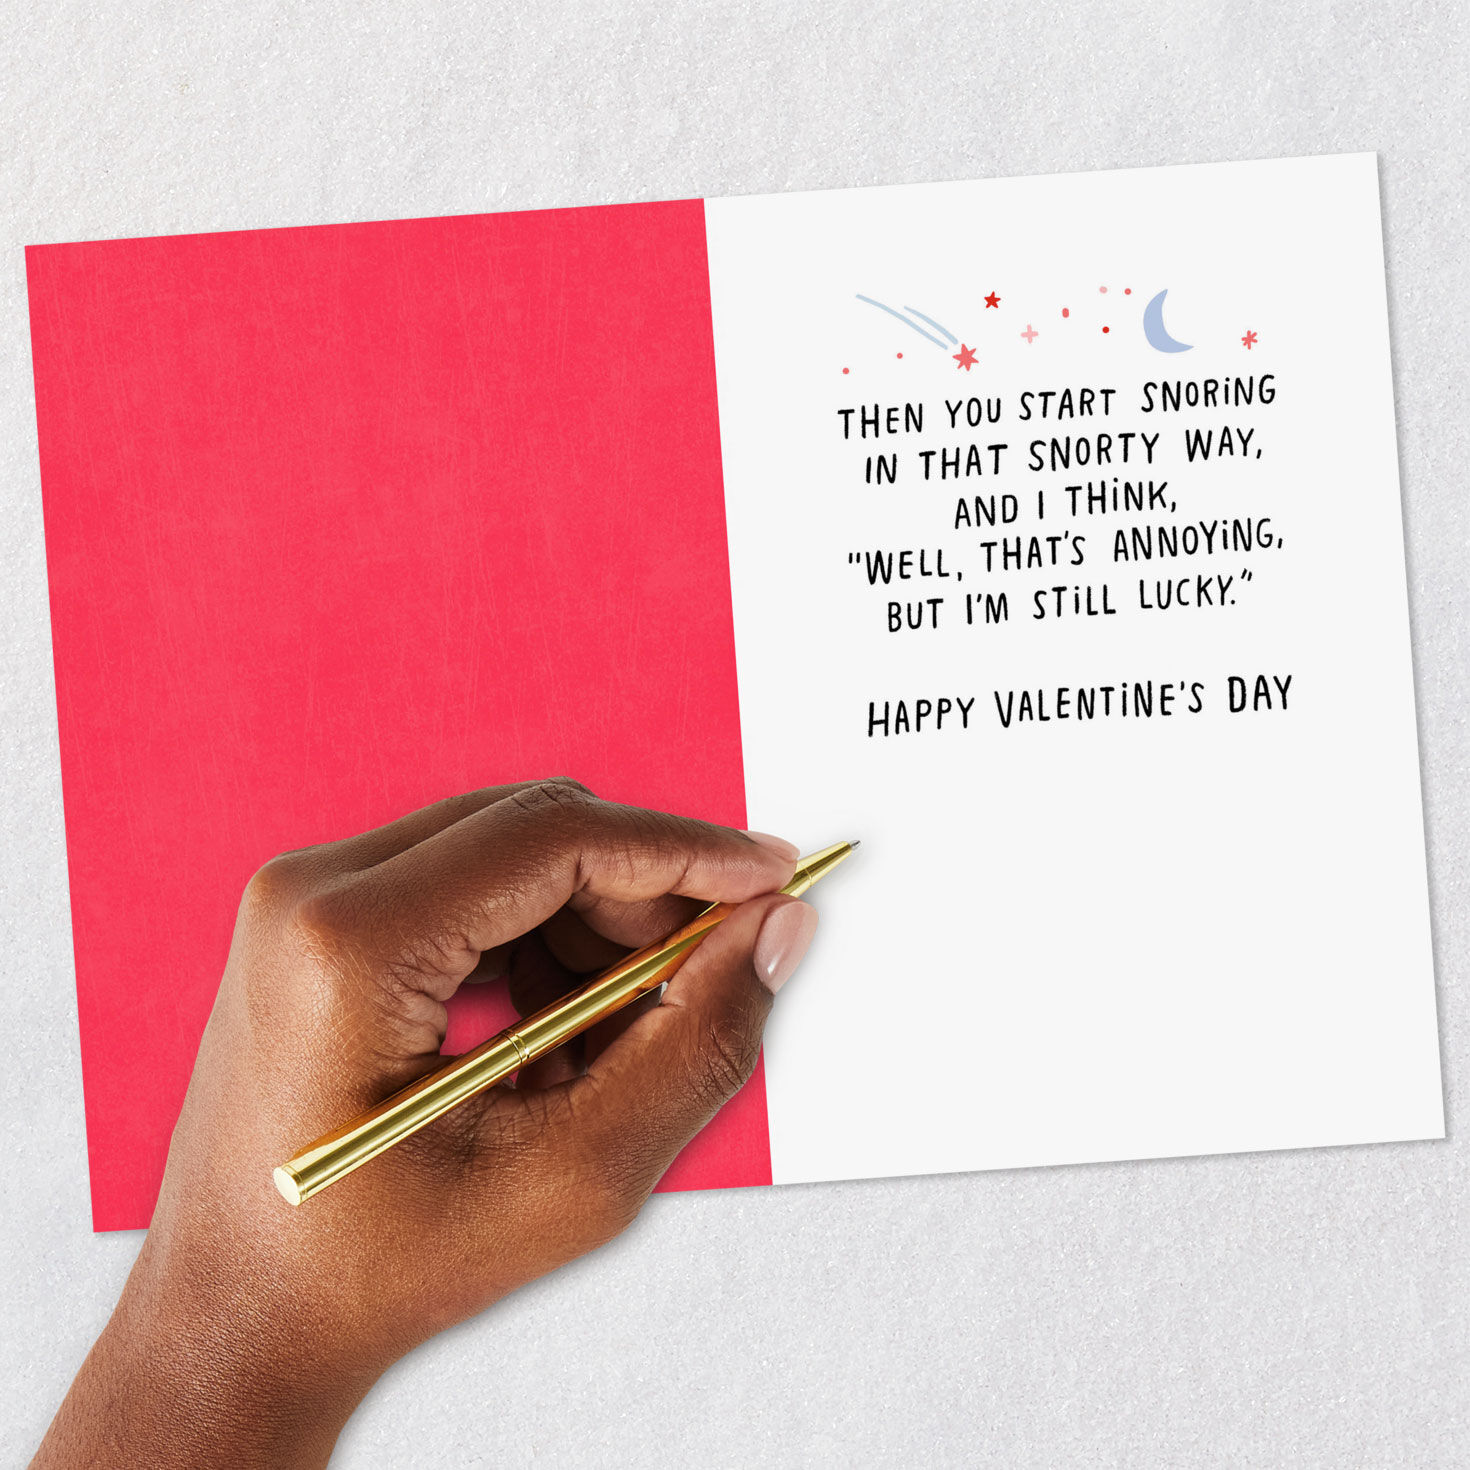 THEN YOU START SNORING
IN THAT SNORTY WAY,
AND I THINK,
"WELL, THAT'S ANNOYING,
BUT I'M STILL LUCKY."
HAPPY VALENTINE'S DAY